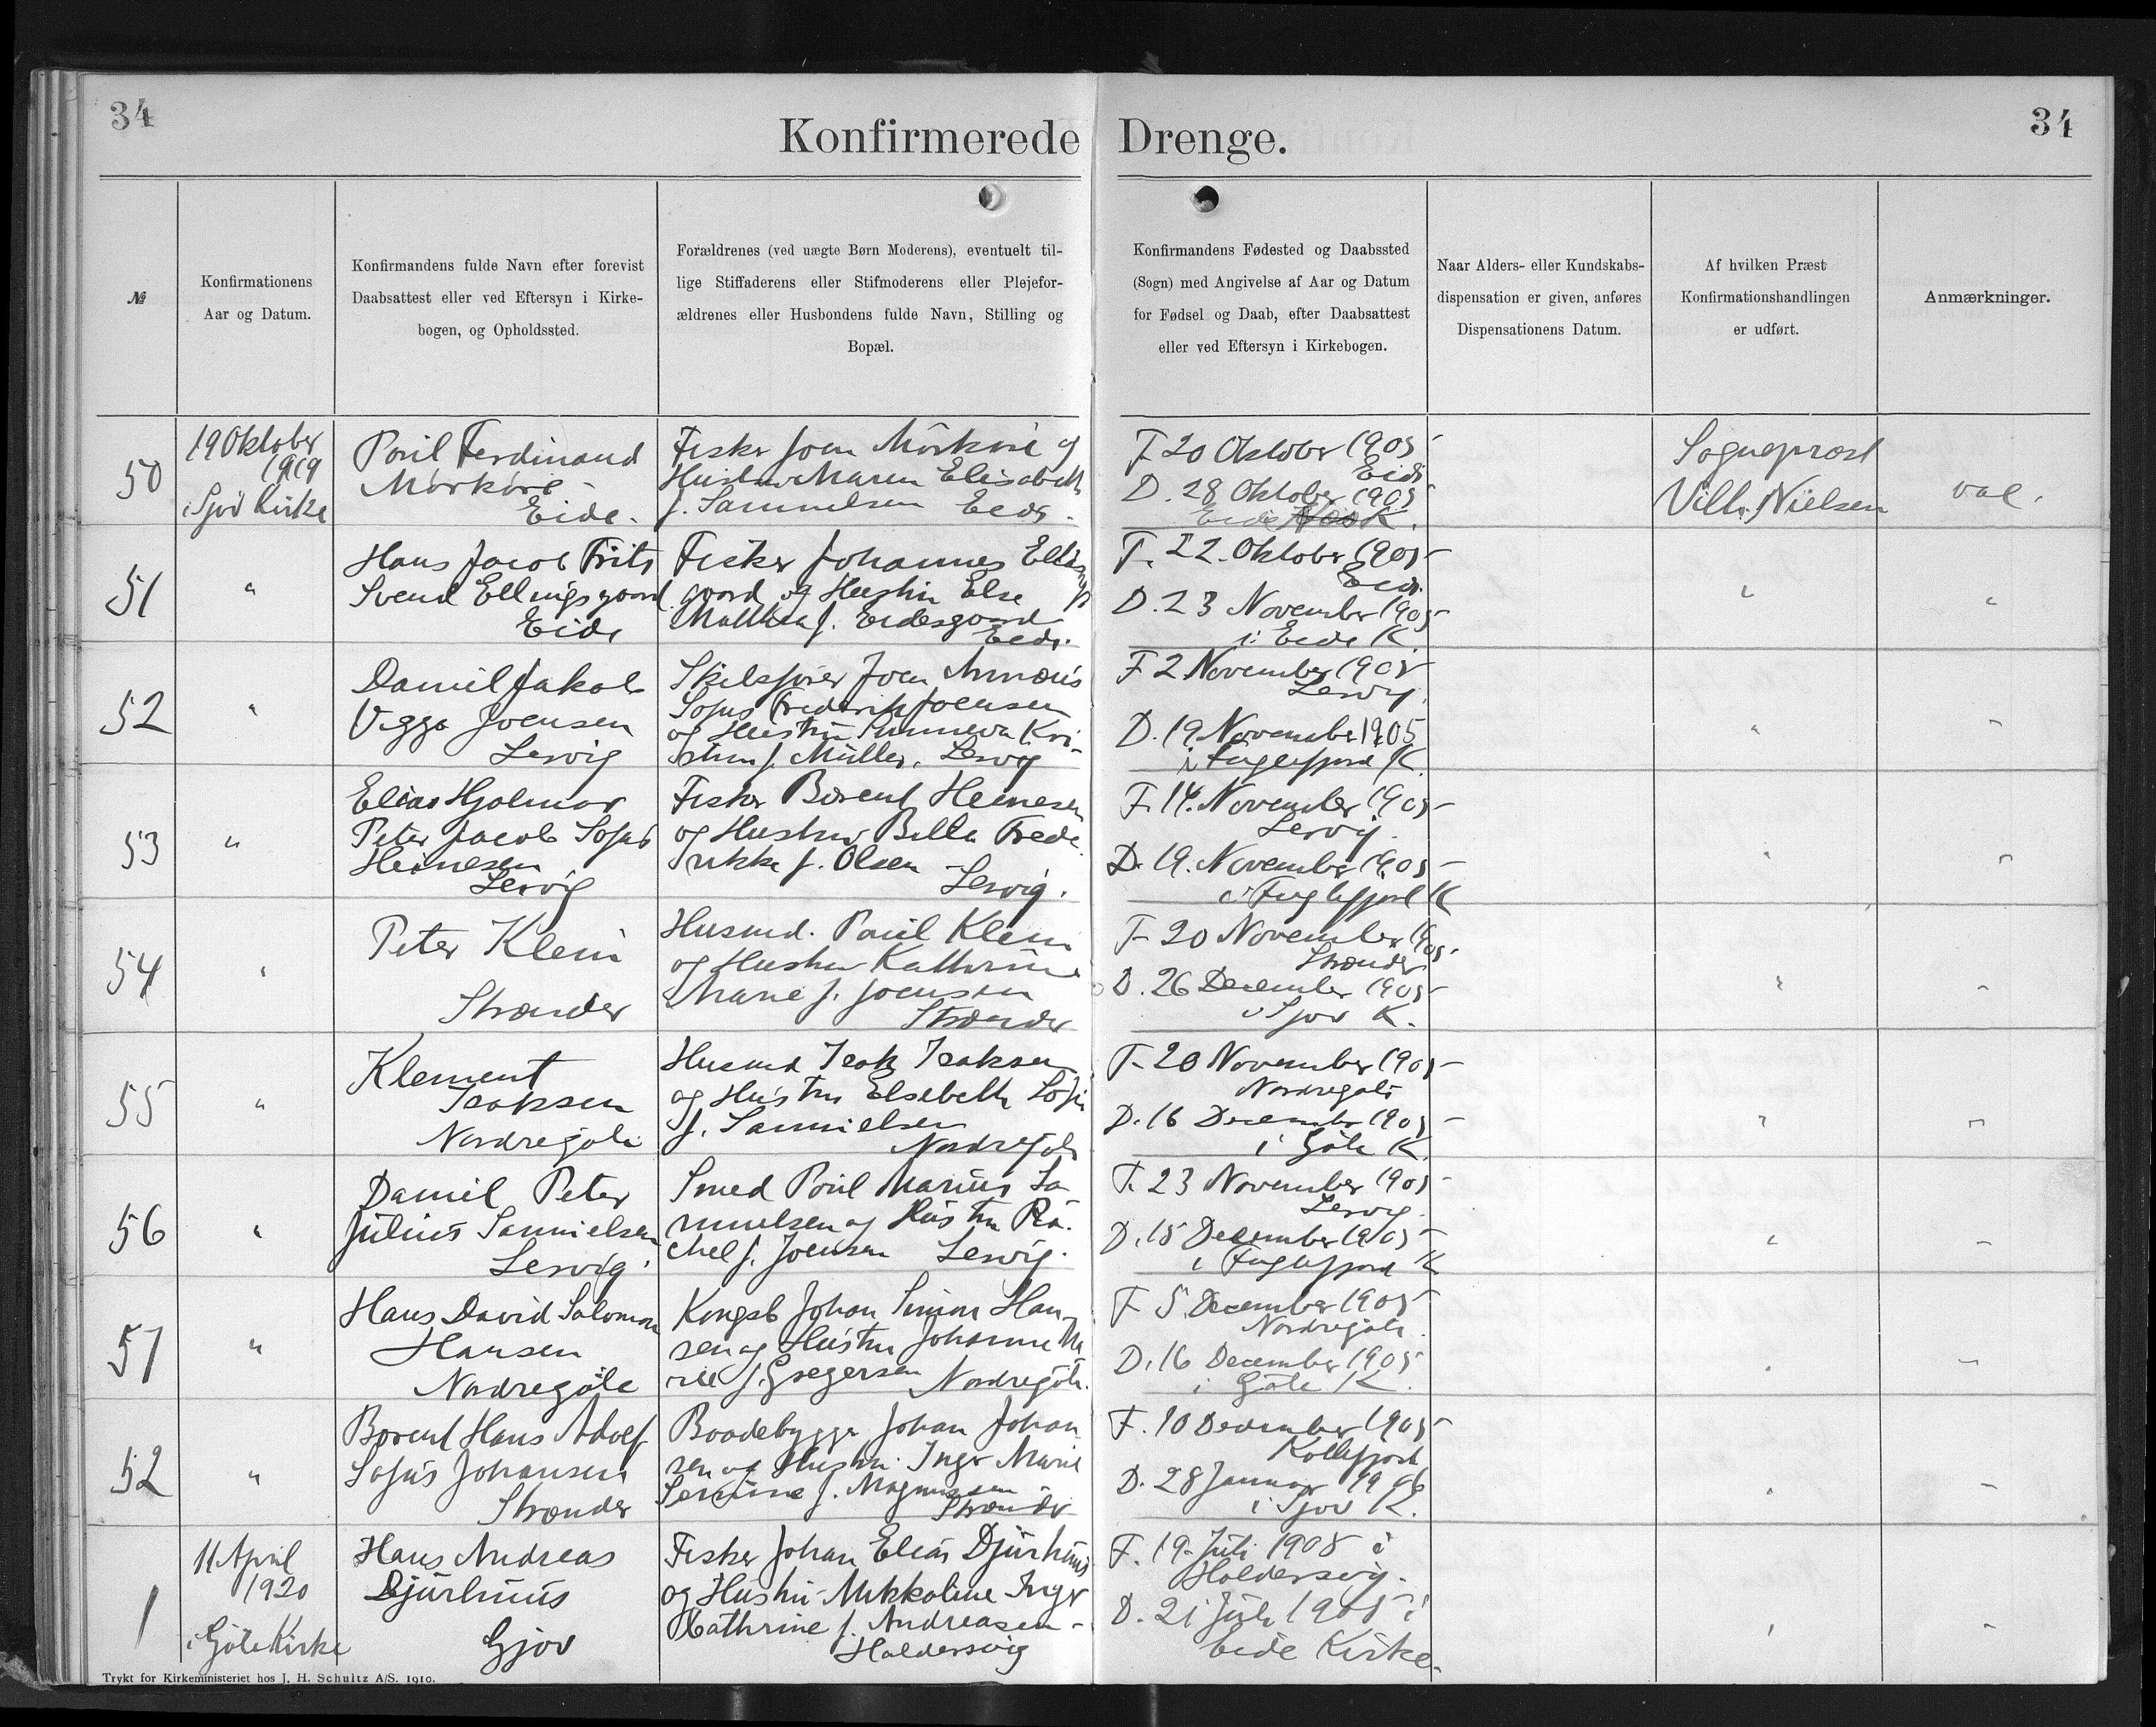 34
34
Konfirmerede Drenge.
№
Konfirmationens
Aar og Datum.
Konfirmandens fulde Navn efter forevist
Daabsattest eller ved Eftersyn i Kirke-
bogen, og Opholdssted.
Forældrenes (ved uægte Børn Moderens), eventuelt til-
lige Stiffaderens eller Stifmoderens eller Plejefor-
ældrenes eller Husbondens fulde Navn, Stilling og
Bopæl.
Konfirmandens Fødested og Daabssted
(Sogn) med Angivelse af Aar og Datum
for Fødsel og Daab, efter Daabsattest
eller ved Eftersyn i Kirkebogen.
Naar Alders- eller Kundskabs-
dispensation er given, anføres
Dispensationens Datum.
Af hvilken Præst
Konfirmationshandlingen
er udført.
Anmærkninger.
50
19 Oktober
1919
i Sjov Kirke
Poul Ferdinand
Mörköre
Eide.
Fisker Joen Mörköre og
Hustru Maren Elisabeth
f. Samuelsen Eide.
F 20 Oktober 1905
Eide
D. 28 Oktober 1905
Eide K.
Sognepræst
Vilh. Nielsen
vac.
51
"
Hans Jacob Frits
Svend Ellingsgaard
Eide
Fisker Johannes Ellings
gaard og Hustru Else
Malthea f. Eidesgaard
Eide.
F. 22. Oktober 1905
Eide.
D. 23 November 1905
i Eide K
"
"
52
"
Daniel Jakob
Viggo Joensen
Lervig
Skibsfører Joen
Sofus Frederik Joensen
og Hustru Sunneva Kri-
f. Müller. Lervig
F 2 November 1905
Lervig.
D. 19 November 1905
i Fuglefjord K.
"
"
53
"
Elias Hjalmar
Peter Jacob Sofus
Heinesen
Lervig
Fisker Berent Heinesen
og Hustru Billa Frede
rikke f. Olsen
Lervig.
F. 14. November 1905
Lervig.
D. 19. November 1905
i Fuglefjord K
"
"
54
"
Peter Klein
Strænder
Husmd. Poul Klein
og Hustru Kathrine
Marie f. Joensen
Strænder
F 20 November 1905
Strænder
D. 26 December 1905
i Sjov K.
"
"
55
"
Klement
Isaksen
Nordregøte
Husmd Isak Isaksen
og Hustru Elsebeth Sofie
f. Samuelsen
Nordregøte
F. 20 November 1905
Nordregøte
D. 16 December 1905
i Göte K.
"
"
56
"
Daniel Peter
Julius Samuelsen
Lervig.
Smed Poul Marius Sa
muelsen og Hustru Ra
chel f. Joensen Lervig.
F. 23 November 1905
Lervig.
D. 15 December 1905
i Fuglefjord K
"
"
57
"
Hans David Salomon
Hansen
Nordregöte
Kongsb Johan Simon Han
sen og Hustru Johanne Ma
rie f. Gregersen Nordregöte.
F 5. December 1905
Nordregöte.
D. 16 December 1905
i Göte K.
"
"
52
"
Berent Hans Adolf
Sofus Johansen
Strænder
Baadebygger Johan Johan
sen og Hustru Inger Marie
f. Magnussen
Strænder
F. 10 December 1905
Kollefjord
D. 28 Januar 1906
i Sjov K.
"
"
1
11 April
1920
i Göte Kirke
Hans Andreas
Djurhuus
Gjov
Fisker Johan Elias Djurhuus
og Hustru Mikkoline Inger
Kathrine f. Andreasen -
Haldersvig
F. 19. Juli 1905 i
Haldersvig.
D. 21 Juli 1905 i
Eide Kirke.
"
"
Trykt for Kirkeministeriet hos J. H. Schultz A/S. 1910.